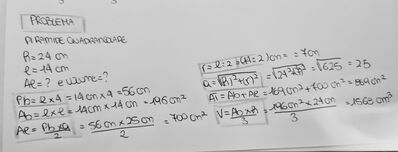 PROBLEMA
PIRAMIDE QUADRANGOLARE
h = 24 cm
l = 14 cm
Al = ? e volume = ?
Pb = l x 4 = 14 cm x 4 = 56 cm
Ab = l x l = 14 cm x 14 cm = 196 cm²
Al = Pb x a / 2 = 56 cm x 25 cm / 2 = 700 cm²
r = l : 2 = (14 : 2) cm = 7 cm
a = √(h)² + (r)² = √24² + 7² = √625 = 25
At = Ab + Al = 169 cm² + 700 cm² = 869 cm²
V = Ab x h / 3 = 196 cm² x 24 cm / 3 = 1568 cm³